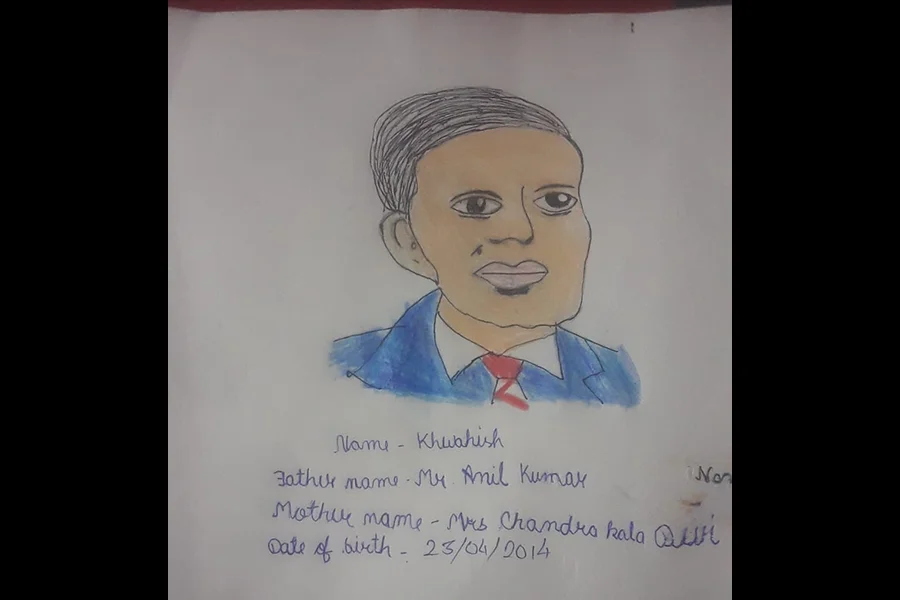 Name - Khwahish
Father name - Mr. Anil Kumar
Mother name - Mrs Chandra kala Devi
Date of birth - 23/04/2014